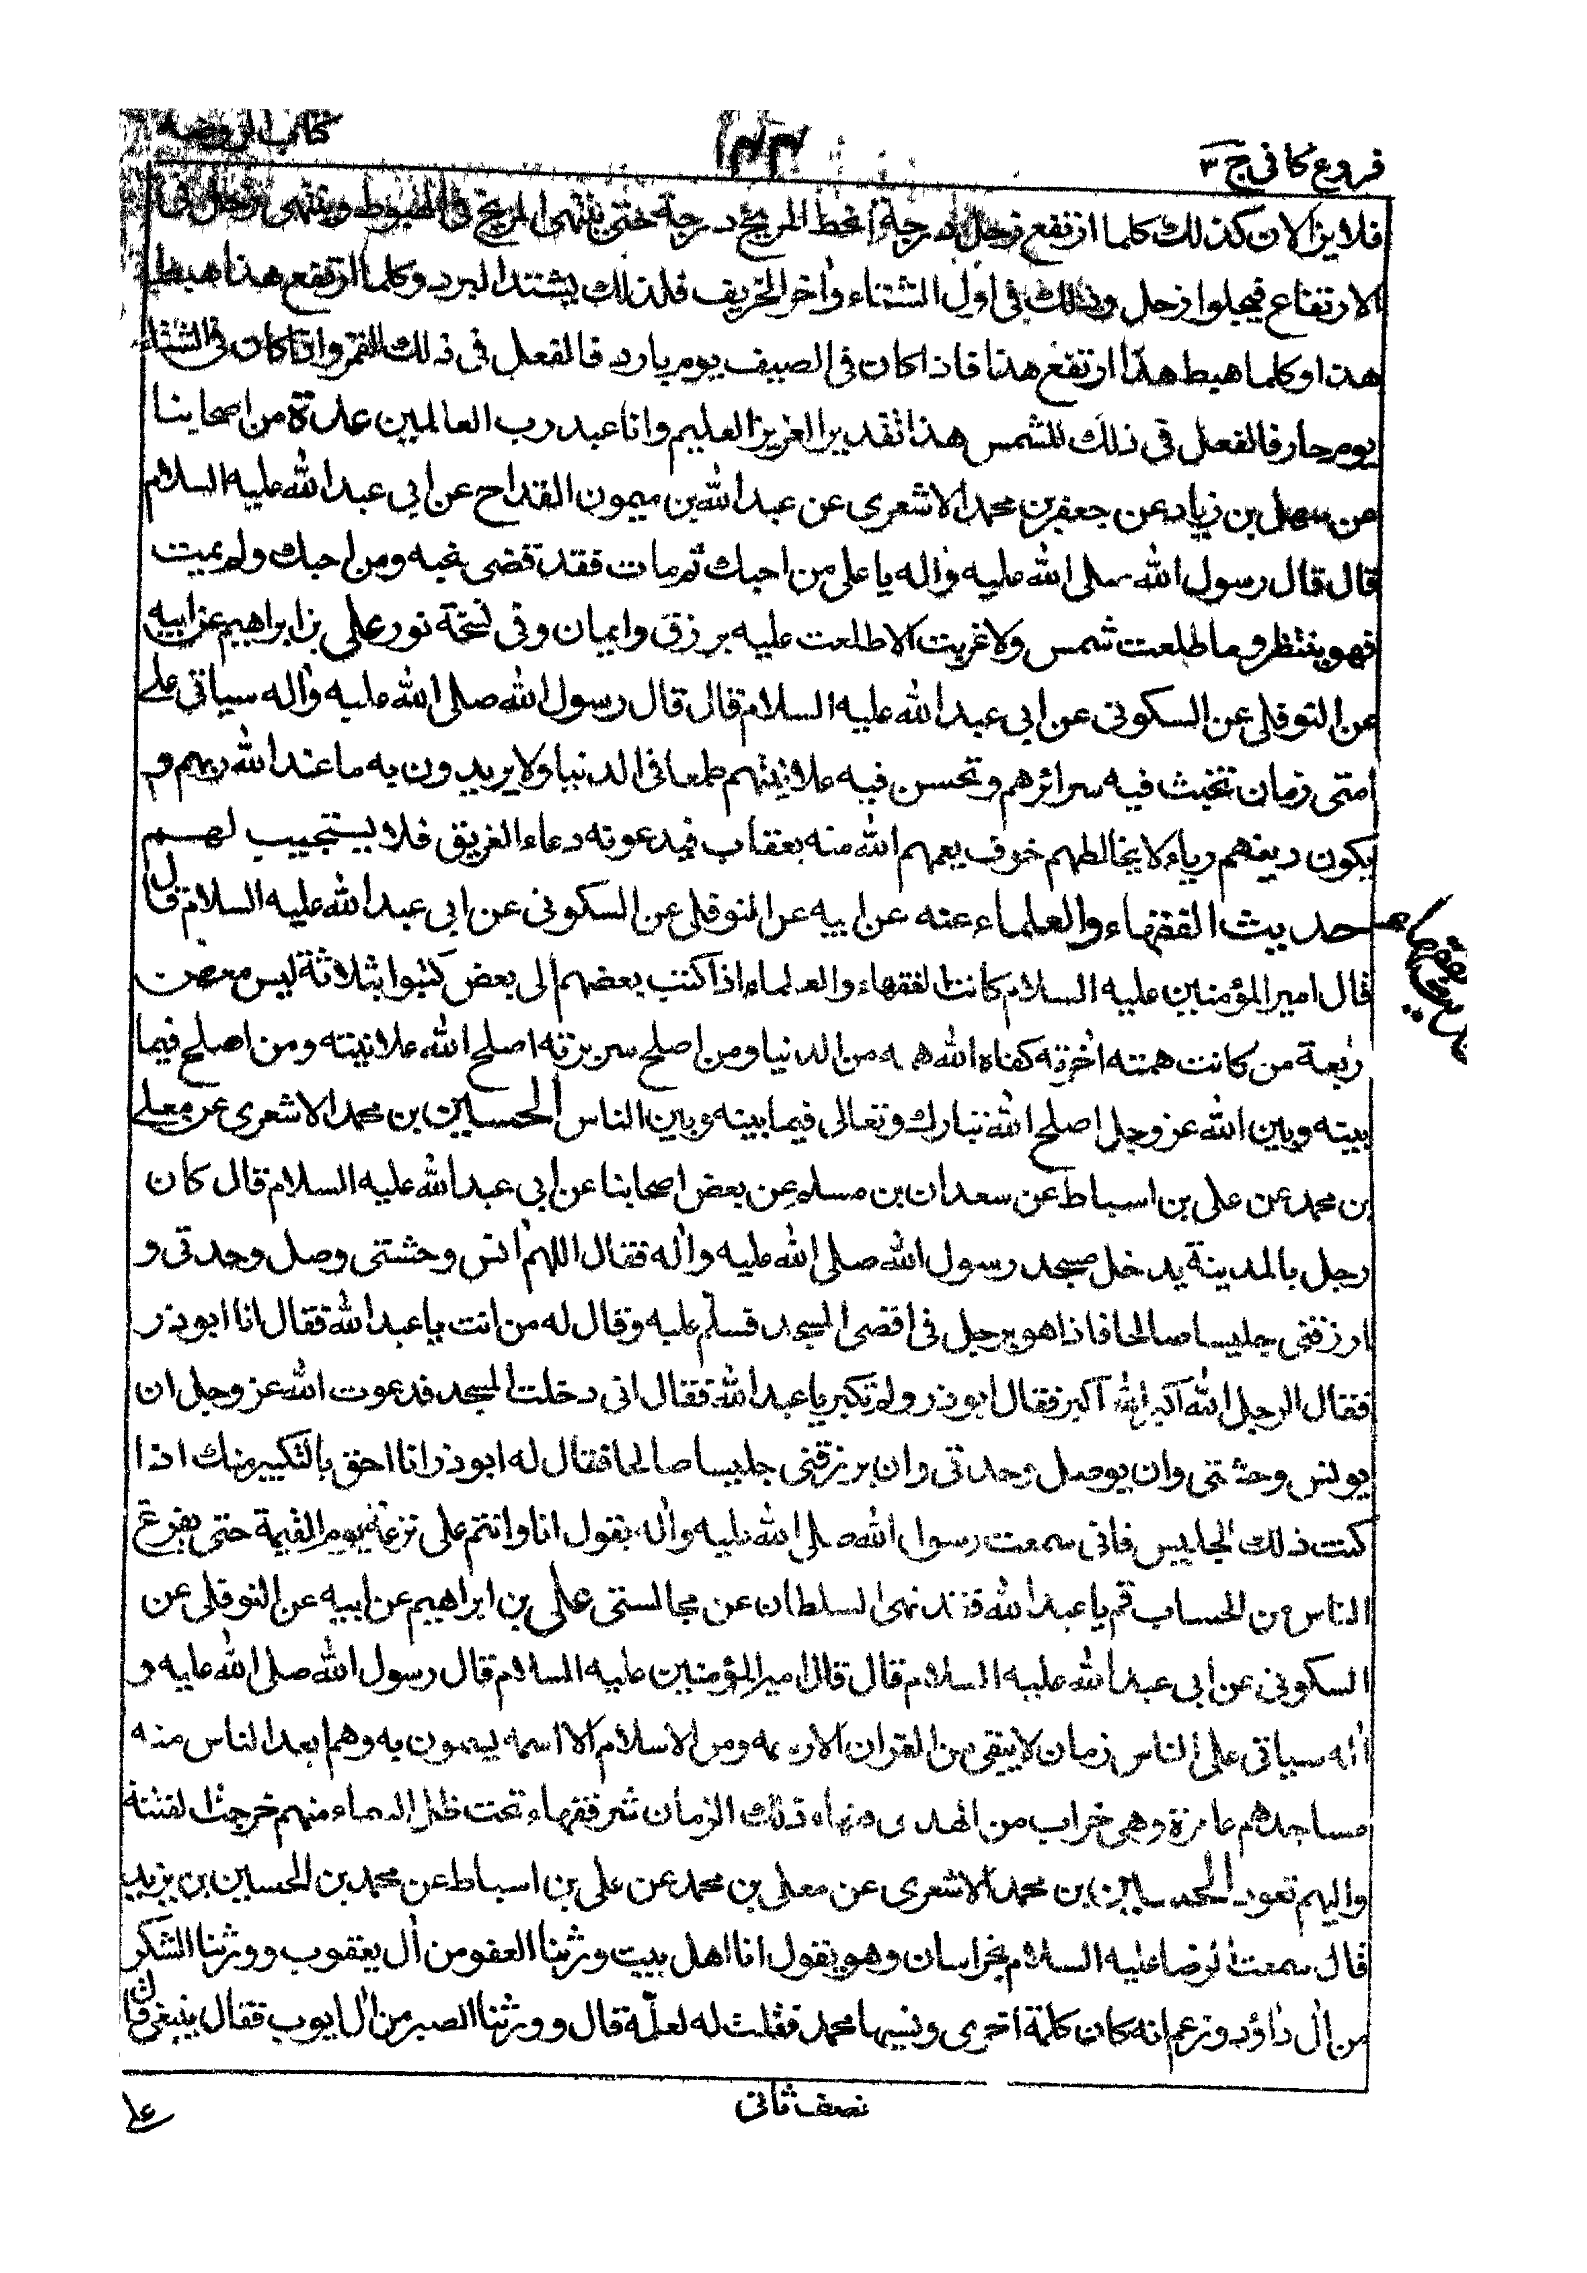 فروع كافى ج ٣
١٤٣
كتاب الروضة
فلا يزالان كذلك كلما ارتفع زحل درجة انحط المريخ درجة حتى ينتهى المريخ فى الهبوط وينتهى زحل فى
الارتفاع فيجلوا زحل وذلك فى اول الشتاء واٰخر الخريف فلذلك يشتد البرد وكلما ارتفع هذا هبط
هذا وكلما هبط هذا ارتفع هذا فاذا كان فى الصيف يوم بارد فالفعل فى ذلك للقمر واذا كان فى الشتاء
يوم حار فالفعل فى ذلك للشمس هذا تقدير العزيز العليم وانا عبد رب العالمين عدة من اصحابنا
عن سهل بن زياد عن جعفر بن محمد الاشعرى عن عبد الله بن ميمون القداح عن ابى عبد الله عليه السلام
قال قال رسول الله صلى الله عليه واٰله يا على من احبك ثم مات فقد قضى نحبه ومن احبك ولم يميت
فهو ينتظر وما طلعت شمس ولا غربت الا طلعت عليه برزق وايمان وفى نسخة نور على بن ابراهيم عن ابيه
عن النوفلى عن السكونى عن ابى عبد الله عليه السلام قال قال رسول الله صلى الله عليه واٰله سياتى على
امتى زمان تخبث فيه سرائرهم وتحسن فيه علانيتهم طمعا فى الدنيا ولا يريدون به ما عند الله ربهم و
يكون دينهم رياء لا يخالطهم خوف يعمهم الله منه بعقاب فيدعونه دعاء الغريق فلا يستجيب لهم
حديث الفقهاء والعلماء عنه عن ابيه عن النوفلى عن السكونى عن ابى عبد الله عليه السلام قال
قال امير المؤمنين عليه السلام كانت الفقهاء والعلماء اذا كتب بعضهم الى بعض كتبوا بثلاثة ليس معهن
رابعة من كانت همته اٰخرته كفاه الله همه من الدنيا ومن اصلح سريرته اصلح الله علانيته ومن اصلح فيما
بينه وبين الله عز وجل اصلح الله تبارك وتعالى فيما بينه وبين الناس الحسين بن محمد الاشعرى عن معلى
بن محمد عن على بن اسباط عن سعدان بن مسلم عن بعض اصحابنا عن ابى عبد الله عليه السلام قال كان
رجل بالمدينة يدخل مسجد رسول الله صلى الله عليه واٰله فقال اللهم اٰنس وحشتى وصل وحدتى و
ارزقنى جليسا صالحا فاذا هو برجل فى اقصى المسجد فسلم عليه وقال له من انت يا عبد الله فقال انا ابو ذر
فقال الرجل الله اكبر الله اكبر فقال ابو ذر ولم تكبر يا عبد الله فقال انى دخلت المسجد فدعوت الله عز وجل ان
يونس وحشتى وان يوصل وحدتى وان يرزقنى جليسا صالحا فقال له ابو ذر انا احق بالتكبير منك اذا
كنت ذلك الجليس فانى سمعت رسول الله صلى الله عليه واٰله يقول انا وانتم على ترعة يوم القيمة حتى يفرغ
الناس من الحساب قم يا عبد الله فقد نهى السلطان عن مجالستى على بن ابراهيم عن ابيه عن النوفلى عن
السكونى عن ابى عبد الله عليه السلام قال قال امير المؤمنين عليه السلام قال رسول الله صلى الله عليه و
اٰله سياتى على الناس زمان لا يبقى من القراٰن الا رسمه ومن الاسلام الا اسمه يسمون به وهم ابعد الناس منه
مساجدهم عامرة وهى خراب من الهدى فقهاء ذلك الزمان شر فقهاء تحت ظل السماء منهم خرجت الفتنة
واليهم تعود الحسين بن محمد الاشعرى عن معلى بن محمد عن على بن اسباط عن محمد بن الحسين بن يزيد
قال سمعت الرضا عليه السلام بخراسان وهو يقول انا اهل بيت ورثنا العفو من اٰل يعقوب وورثنا الشكر
من اٰل داؤد وزعم انه كان كلمة اخرى ونسيها محمد فقلت له لعلّه قال وورثنا الصبر من اٰل ايوب فقال ينبغى قال
نصف ثانى
على